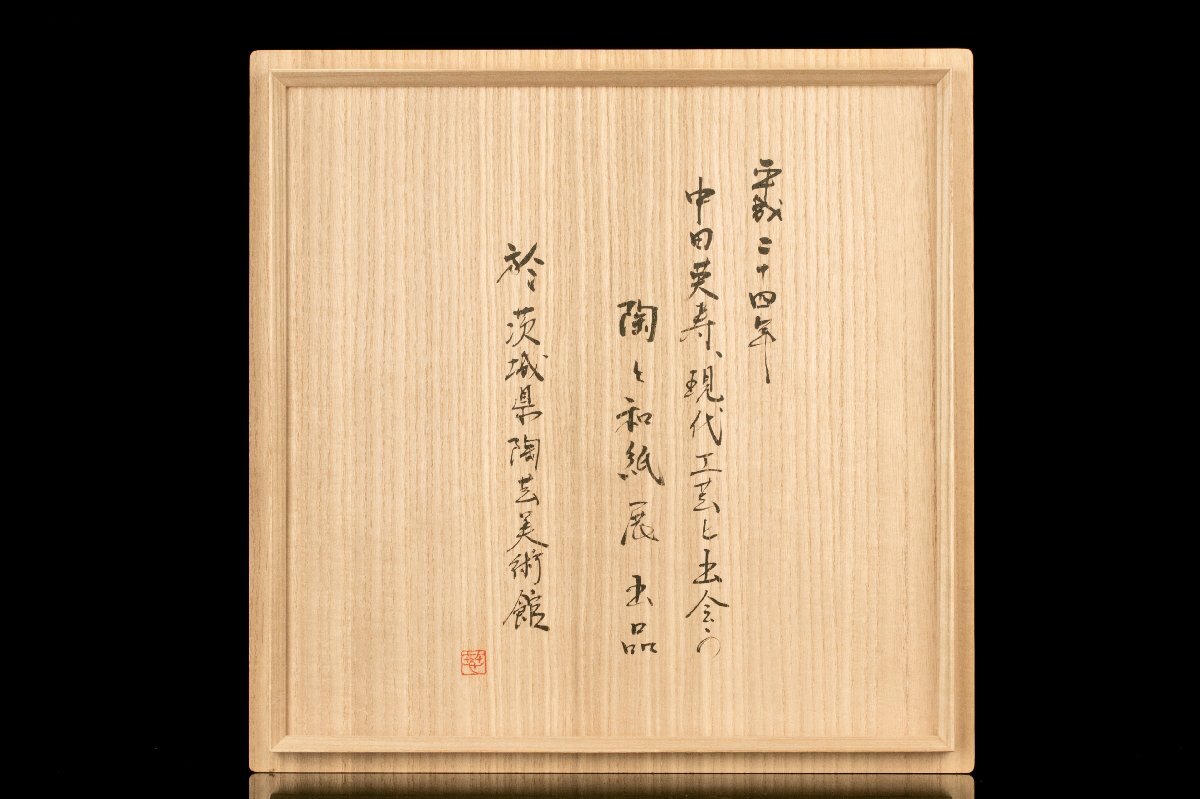 平成二十四年
中田英寿、現代工芸と出会う
陶と和紙展 出品
於 茨城県陶芸美術館